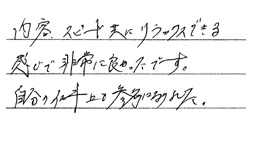 内容、スピード共にリラックスできる
感じで非常に良かったです。
自分の仕事上も参考になりました。